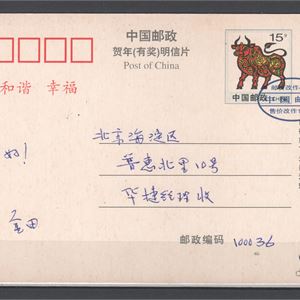 中国邮政
贺年(有奖)明信片
Post of China
15分
中国邮政
和谐 幸福
北京海淀区
普惠北里10号
华捷经理 收
好!
邮政编码 100036